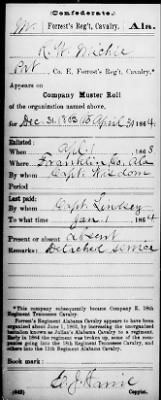 (Confederate.)
Forrest's Reg't, Cavalry. Ala.
R. W. Michie
Pvt, Co. E, Forrest's Reg't, Cavalry.*
Appears on
Company Muster Roll
of the organization named above,
for Dec. 31, 1863 to April 30, 1864.
Enlisted:
When Apl. 1, 1863
Where Franklin Co. Ala
By whom Capt. Wisdom
Period
Last paid:
By whom Capt. Lindsey
To what time Jan 1, 1864
Present or absent absent
Remarks: Detached service
*This company subsequently became Company E, 18th Regiment Tennessee Cavalry.
Forrest's Regiment Alabama Cavalry appears to have been organized about June 1, 1863, by increasing the unorganized battalion known as Julian's Alabama Cavalry to a regiment. Early in 1864 the regiment was broken up, some of the companies going into the 18th Regiment Tennessee Cavalry, and others into the 11th Regiment Alabama Cavalry.
Book mark:
(642)
Copyist.